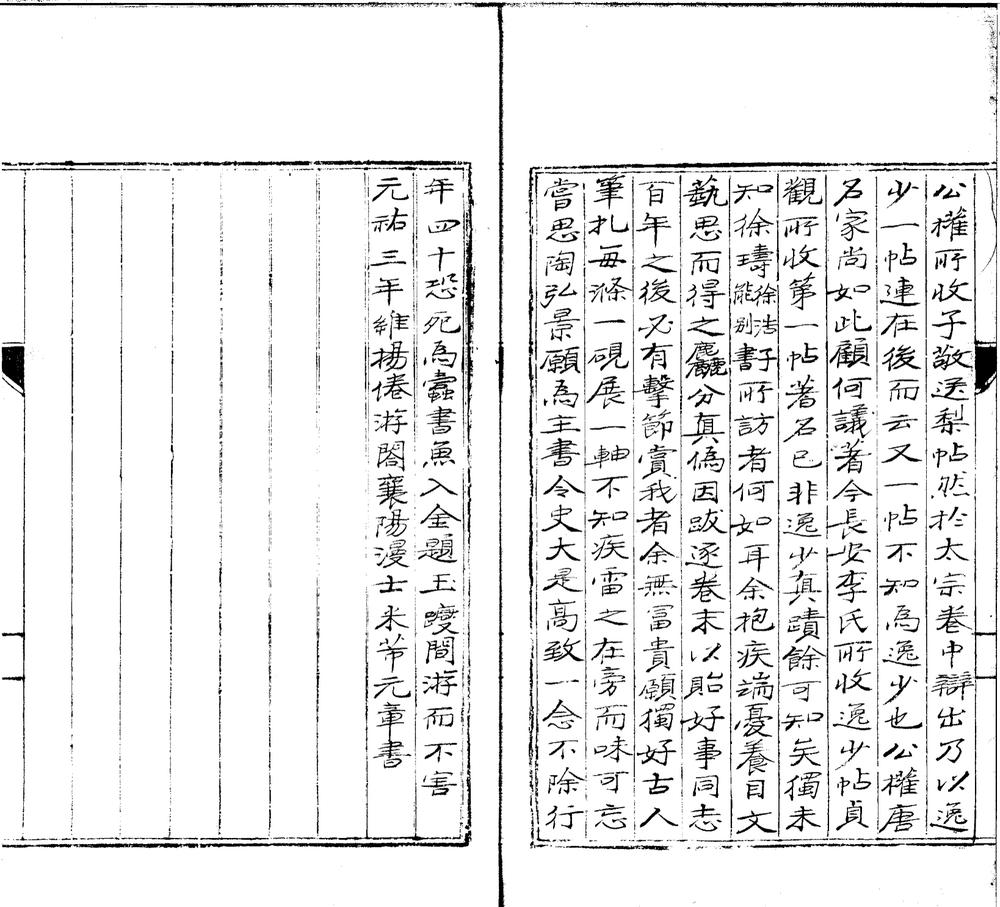 公權所收子敬送梨帖然於太宗卷中辯出乃以逸
少一帖連在後而云又一帖不知爲逸少也公權唐
名家尚如此顧何議著今長安李氏所收逸少帖貞
觀所收第一帖著名已非逸少真蹟餘可知矣獨未
知徐璹徐浩子能別書所訪者何如耳余抱疾端憂養目文
藝思而得之麤分真僞因跋逐卷末以貽好事同志
百年之後必有擊節賞我者余無富貴願獨好古人
筆札每滌一硯展一軸不知疾雷之在旁而味可忘
嘗思陶弘景願爲主書令史大是高致一念不除行
年四十恐死爲蠹書魚入金題玉躞間游而不害
元祐三年維揚倦游閣襄陽漫士米芾元章書